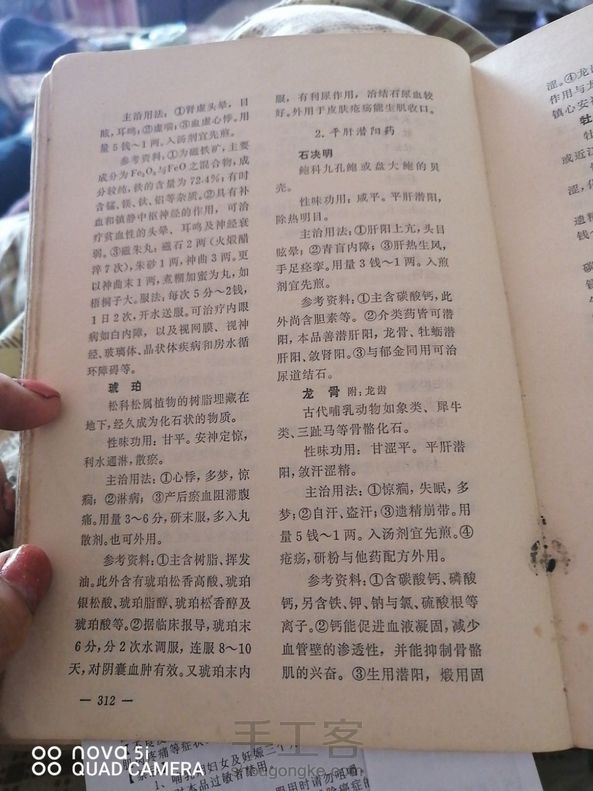 主治用法：①肾虚头晕，目
眩，耳鸣；②虚喘；③血虚心悸。用
量5钱～1两。入汤剂宜先煎。
参考资料：①为磁铁矿，主要
成分为Fe₂O₃与FeO之混合物，成
分较纯，铁的含量为72.4%；有时
含锰、镁、钛、铝等杂质。②具有补
血和镇静中枢神经的作用，可治
疗贫血性的头晕、耳鸣及神经衰
弱。③磁朱丸：磁石2两（火煅醋
淬7次），朱砂1两，神曲3两。更
以神曲末1两，煮糊加蜜为丸，如
梧桐子大。服法：每次5分～2钱，
1日2次，开水送服。可治疗内眼
病如白内障，以及视网膜、视神
经、玻璃体、晶状体疾病和房水循
环障碍等。
琥珀
松科松属植物的树脂埋藏在
地下，经久成为化石状的物质。
性味功用：甘平。安神定惊，
利水通淋，散瘀。
主治用法：①心悸，多梦，惊
痫；②淋病；③产后瘀血阻滞腹
痛。用量3～6分，研末服，多入丸
散剂。也可外用。
参考资料：①主含树脂、挥发
油。此外含有琥珀松香高酸、琥珀
银松酸、琥珀脂醇、琥珀松香醇及
琥珀酸等。②据临床报导，琥珀末
6分，分2次水调服，连服8～10
天，对阴囊血肿有效。又琥珀末内
— 312 —
服，有利尿作用，治结石尿血较
好。外用于皮肤疮疡能生肌收口。
2.平肝潜阳药
石决明
鲍科九孔鲍或盘大鲍的贝
壳。
性味功用：咸平。平肝潜阳，
除热明目。
主治用法：①肝阳上亢，头目
眩晕；②青盲内障；③肝热生风，
手足痉挛。用量3钱～1两。入煎
剂宜先煎。
参考资料：①主含碳酸钙，此
外尚含胆素等。②介类药皆可潜
阳，本品善潜肝阳，龙骨、牡蛎潜
肝阳、敛肾阳。③与郁金同用可治
尿道结石。
龙骨 附：龙齿
古代哺乳动物如象类、犀牛
类、三趾马等骨骼化石。
性味功用：甘涩平。平肝潜
阳，敛汗涩精。
主治用法：①惊痫，失眠，多
梦；②自汗、盗汗；③遗精崩带。用
量5钱～1两。入汤剂宜先煎。④
疮疡，研粉与他药配方外用。
参考资料：①含碳酸钙、磷酸
钙，另含铁、钾、钠与氯、硫酸根等
离子。②钙能促进血液凝固，减少
血管壁的渗透性，并能抑制骨骼
肌的兴奋。③生用潜阳，煅用固
涩。④龙
作用与
镇心安
牡
或近江
遗精
钱～
疼痛等症状。
哺乳期妇女及妊娠三个
对本品过敏者禁用。
用时请勿咀嚼
手工客
shougongke.com
nova 5i
QUAD CAMERA